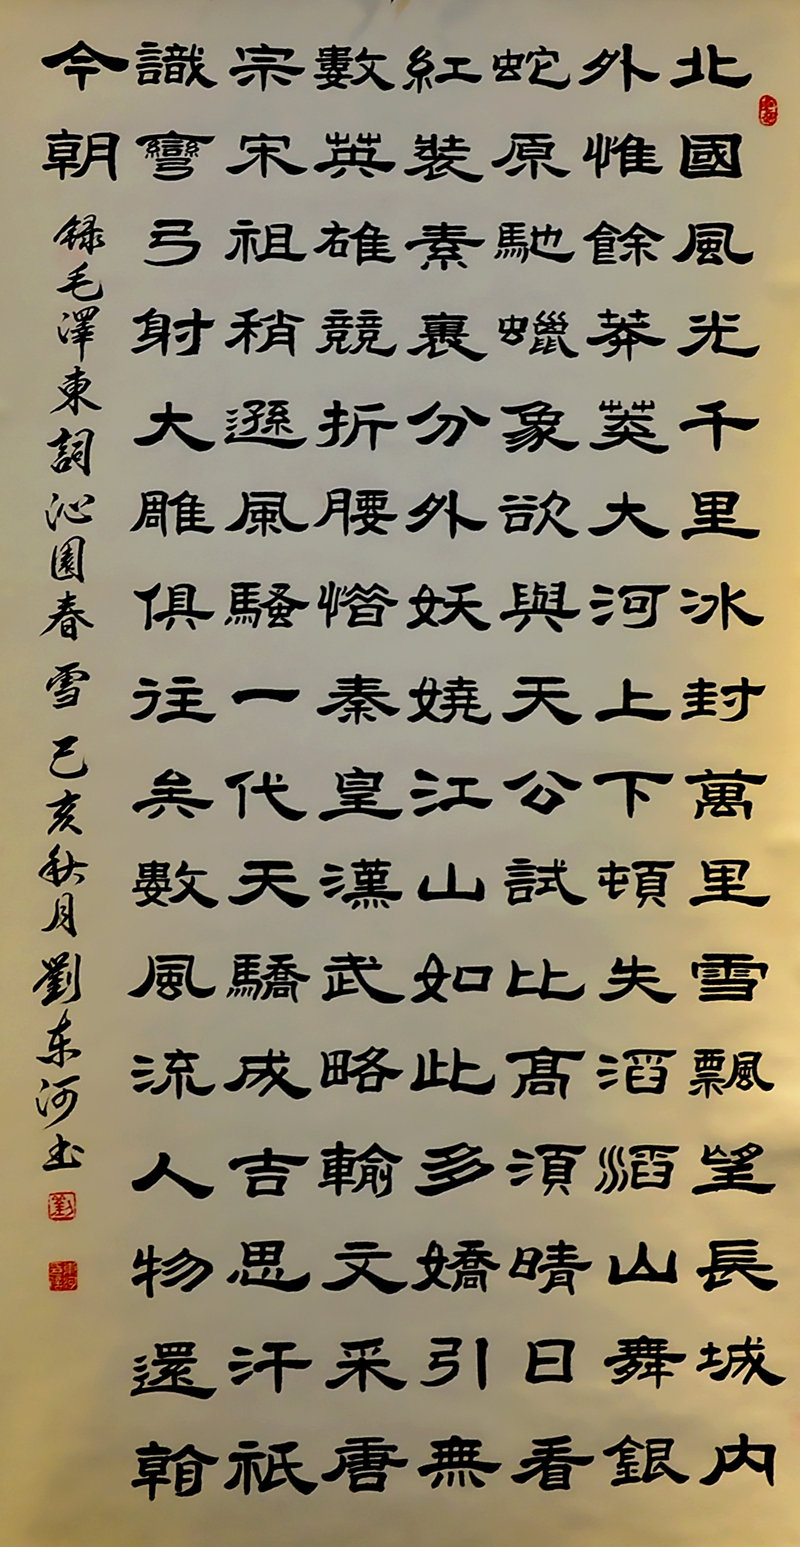 北國風光千里冰封萬里雪飄望長城内
外惟餘莽莽大河上下頓失滔滔山舞銀
蛇原馳蠟象欲與天公試比髙須晴日看
紅裝素裹分外妖嬈江山如此多嬌引無
數英雄競折腰惜秦皇漢武略輸文采唐
宗宋祖稍遜風騷一代天驕成吉思汗祇
識彎弓射大雕俱往矣數風流人物還看
今朝 録毛澤東詞沁園春雪 己亥秋月劉东河书
劉